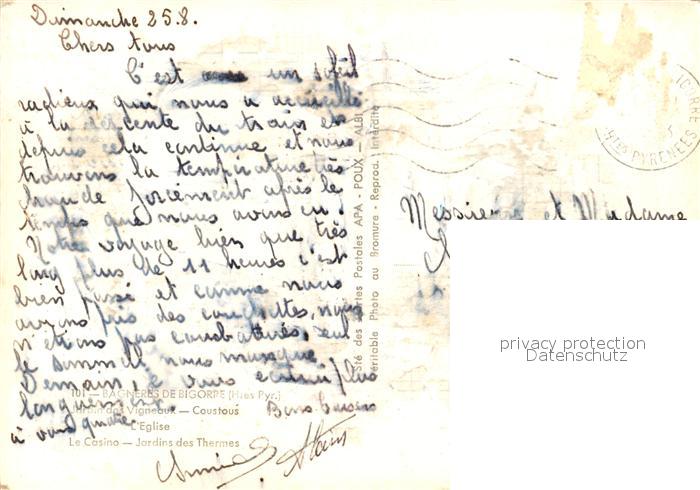 Dimanche 25.8.
Chers tous
C'est un soleil
radieux qui nous a accueilli
à la descente du train et
depuis cela continue et nous
trouvons la température très
chaude forcément après le
temps que nous avons eu.
Notre voyage bien que très
long plus de 11 heures s'est
bien passé et comme nous
avons pris des couchettes, nous
n'étions pas courbaturés, seul
le sommeil nous manque
Demain, je vous écrirai plus
longuement.
Bons baisers
à vous quatre.
Annie Alain
101 — BAGNÈRES DE BIGORRE (Htes Pyr.)
Jardin des Vigneaux — Coustous
L'Eglise
Le Casino — Jardins des Thermes
Sté des Cartes Postales APA - POUX - ALBI
Véritable Photo au Bromure - Reprod. Interdite
HTES PYRENEES
Messieurs et Madame
privacy protection
Datenschutz